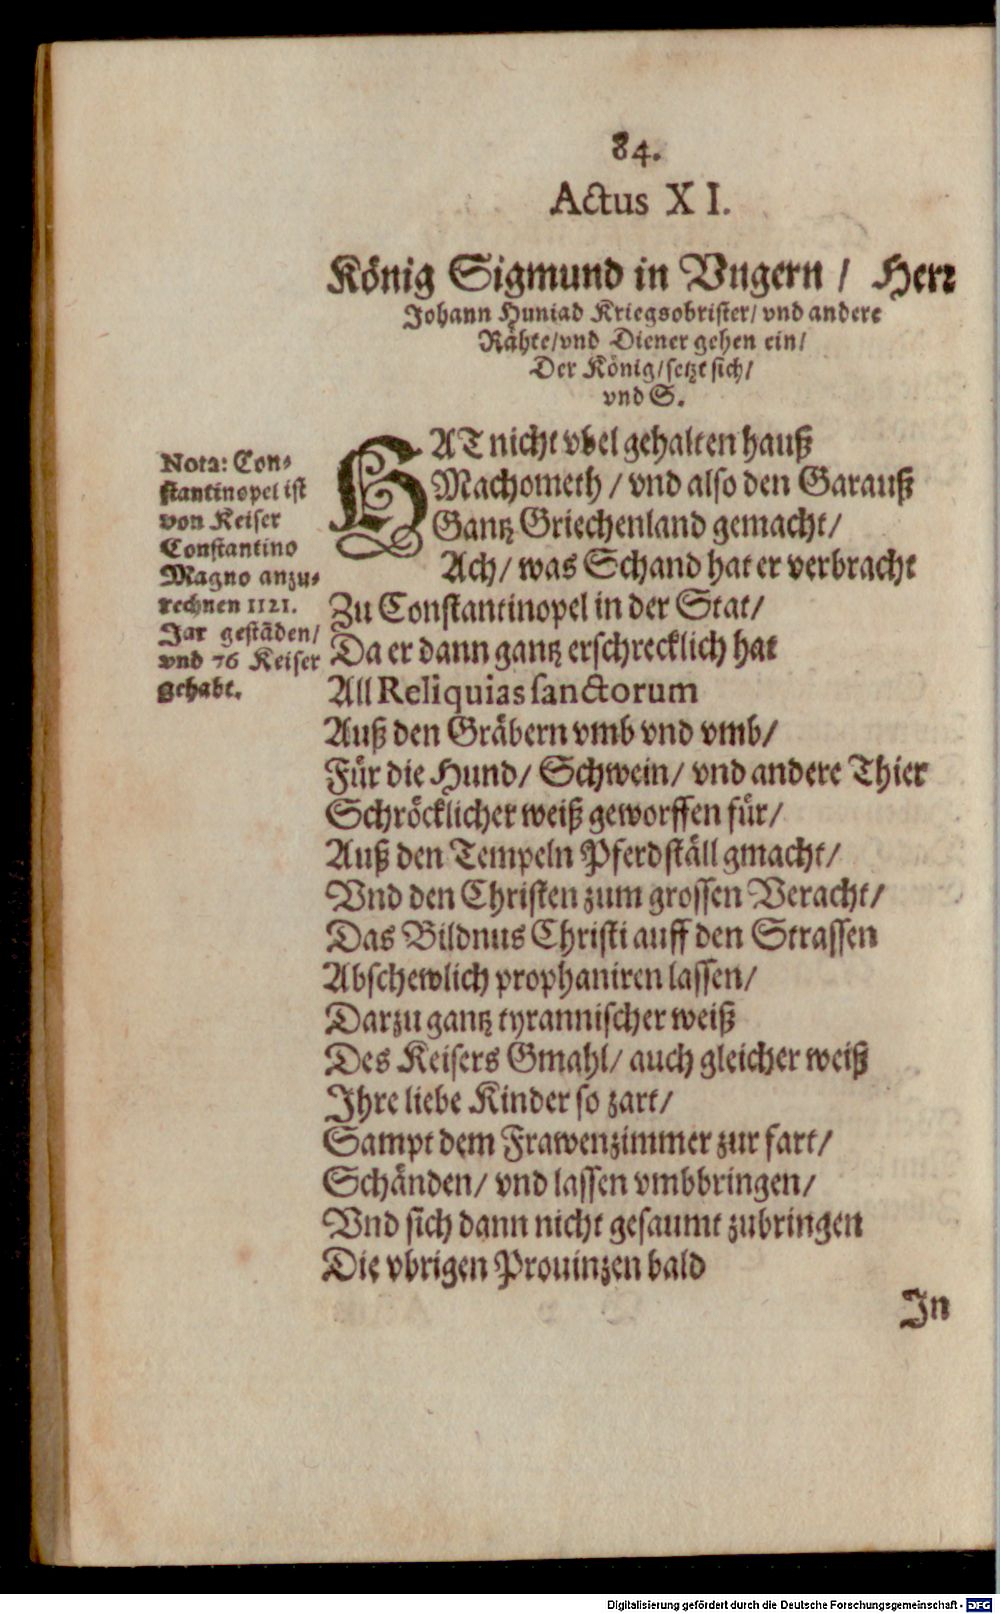 84.
Actus XI.
König Sigmund in Vngern / Herr
Johann Huniad Kriegsobrister/ vnd andere
Rähte/vnd Diener gehen ein/
Der König/setzt sich/
vnd S.
Nota: Con-
stantinopel ist
von Keiser
Constantino
Magno anzu-
rechnen 1121.
Jar gestãden/
vnd 76 Keiser
gehabt.
HAT nicht vbel gehalten hauß
Machometh / vnd also den Garauß
Gantz Griechenland gemacht/
Ach/ was Schand hat er verbracht
Zu Constantinopel in der Stat/
Da er dann gantz erschrecklich hat
All Reliquias sanctorum
Auß den Gräbern vmb vnd vmb/
Für die Hund/ Schwein/ vnd andere Thier
Schröcklicher weiß geworffen für/
Auß den Tempeln Pferdställ gmacht/
Vnd den Christen zum grossen Veracht/
Das Bildnus Christi auff den Strassen
Abschewlich prophaniren lassen/
Darzu gantz tyrannischer weiß
Des Keisers Gmahl/ auch gleicher weiß
Ihre liebe Kinder so zart/
Sampt dem Frawenzimmer zur fart/
Schänden/ vnd lassen vmbbringen/
Vnd sich dann nicht gesaumt zubringen
Die vbrigen Prouinzen bald
In
Digitalisierung gefördert durch die Deutsche Forschungsgemeinschaft - DFG